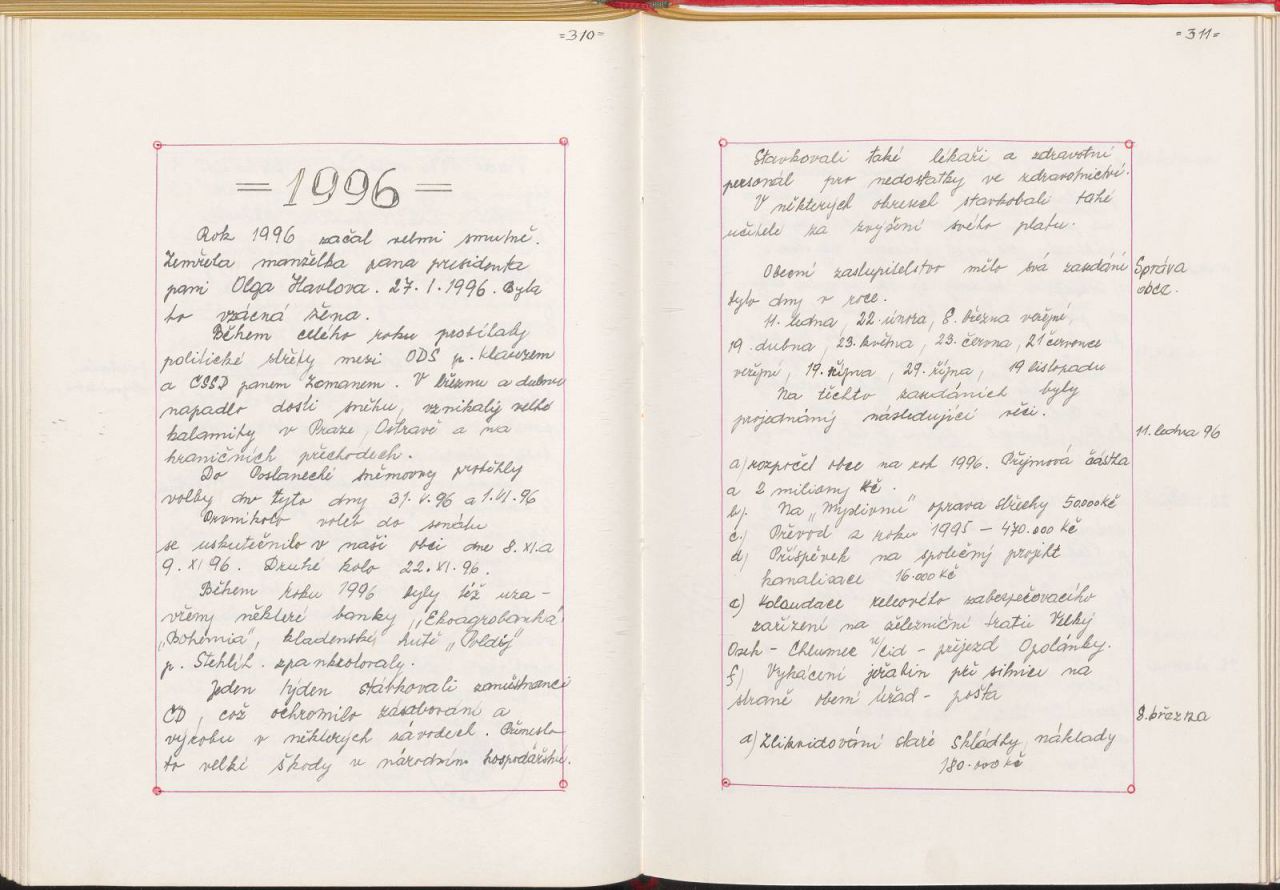 =310=
=1996=
Rok 1996 začal velmi smutně.
Zemřela manželka pana presidenta
paní Olga Havlova. 27.1.1996. Byla
to vzácná žena.
Během celého roku probíhaly
politické střety mezi ODS p. Klausem
a ČSSD panem Zemanem. V březnu a dubnu
napadlo dosti sněhu, vznikaly velké
kalamity v Praze, Ostravě a na
hraničních přechodech.
Do Poslanecké sněmovny proběhly
volby dne tyto dny 31.V.96 a 1.VI.96
První kolo voleb do senátu
se uskutečnilo v naší obci dne 8.XI. a
9.XI 96. Druhé kolo 22.XI.96.
Během roku 1996 byly též uza-
vřeny některé banky „Ekoagrobanka“
„Bohemia“, kladenské hutě „Poldy“
p. Stehlík. zpankrotovaly.
Jeden týden stávkovali zaměstnanci
ČD, což ochromilo zásobování a
výrobu v některých závodech. Přineslo
to velké škody v národním hospodářství.
=311=
Stavkovali také lékaři a zdravotní
personál pro nedostatky ve zdravotnictví.
V některých okresech stavkovali také
učitele za zvýšení svého platu.
Obecní zastupitelstvo mělo svá zasedání
Správa
obce.
tyto dny v roce.
11. ledna, 22. února, 8. března veřejné,
19. dubna, 23. května, 23. června, 21 července
veřejné, 19. října, 29. října, 19 listopadu
Na těchto zasedáních byly
projednány následující věci.
11. ledna 96
a) rozpočet obce na rok 1996. Příjmová částka
a 2 miliony Kč.
b). Na „Myslivně“ oprava střechy 50000Kč
c) Převod z roku 1995 – 470.000 Kč
d) Příspěvek na společný projekt
kanalisace 16.000 Kč
e) Kolaudace reléového zabezpečovacího
zařízení na železniční tratu Velký
Osek – Chlumec n/Cid – příjezd Opolánky.
f) Vykácení jeřabin při silnici na
straně obecní úřad – pošta
8. března
a) Zlikvidování staré skládky, náklady
180.000 Kč